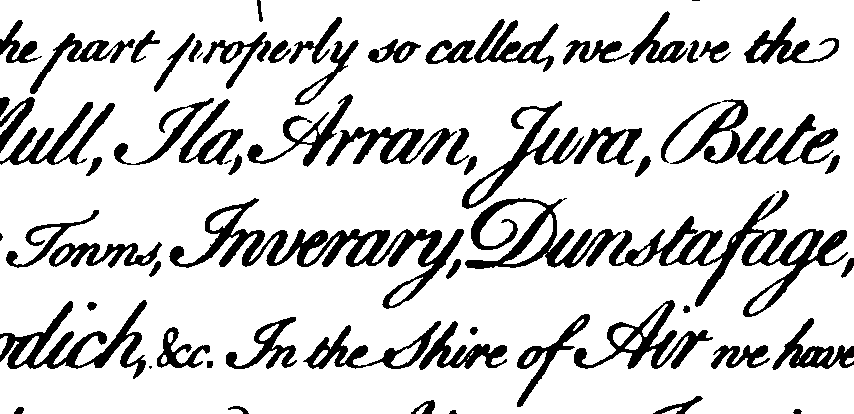 he part properly so called, we have the
ull, Ila, Arran, Jura, Bute,
Towns, Inverary, Dunstafage,
odich, &c. In the Shire of Air we have